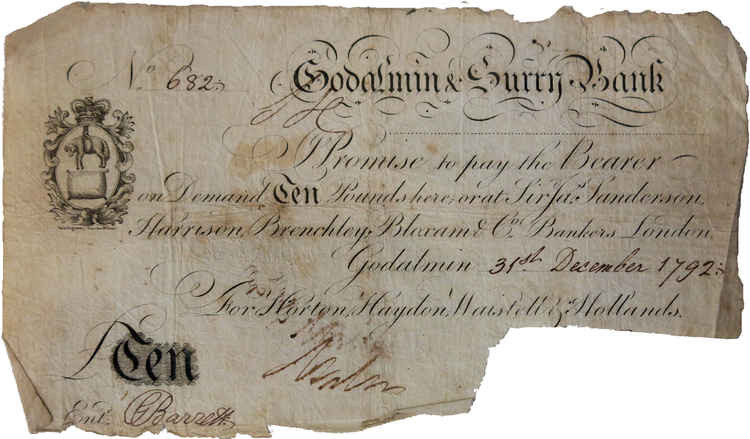 No. 682
Godalmin & Surry Bank
I Promise to pay the Bearer
on Demand Ten Pounds here, or at Sir Jas. Sanderson
Harrison, Brenchley, Bloxam & Co. Bankers London
Godalmin 31st December 1792
For Horton, Haydon, Waistell & Hollands.
£Ten
Entd. Barrett